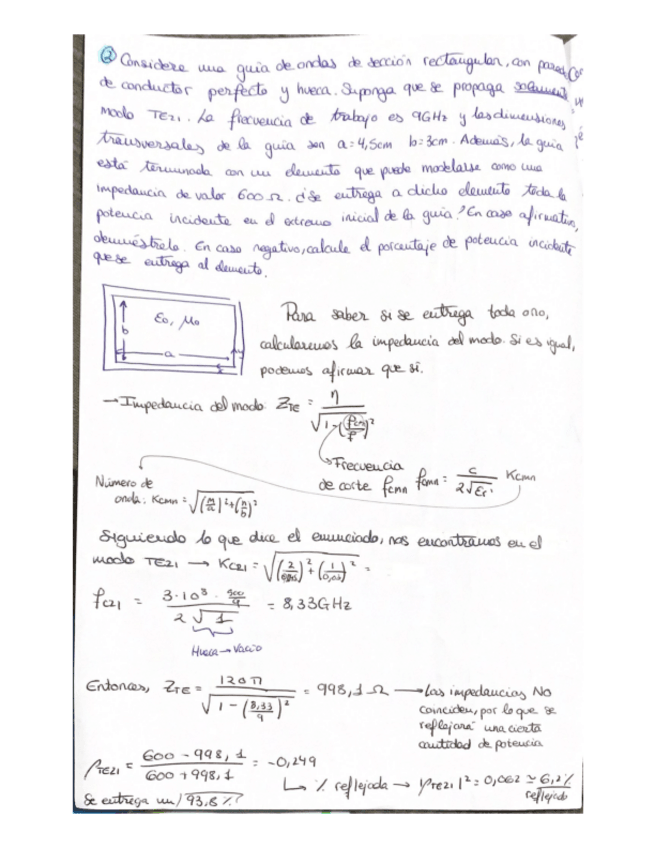 ② Considere una guía de ondas de sección rectangular, con pared
de conductor perfecto y hueca. Suponga que se propaga solamente
modo TE21. La frecuencia de trabajo es 9GHz y las dimensiones
transversales de la guía son a=4,5cm b=3cm. Además, la guía
está terminada con un elemento que puede modelarse como una
impedancia de valor 600Ω. ¿Se entrega a dicho elemento toda la
potencia incidente en el extremo inicial de la guía? En caso afirmativo,
demuéstrelo. En caso negativo, calcule el porcentaje de potencia incidente
que se entrega al elemento.
b
ε0, μ0
a
Para saber si se entrega toda o no,
calcularemos la impedancia del modo. Si es igual,
podemos afirmar que sí.
→ Impedancia del modo: ZTE = η / √(1-(fcmn/f)²)
Frecuencia
de corte fcmn fcmn = c / 2√εr · Kcmn
Número de
onda: Kcmn = √((m/a)²+(n/b)²)
Siguiendo lo que dice el enunciado, nos encontramos en el
modo TE21 → Kc21 = √((2/0,045)²+(1/0,03)²) =
fc21 = 3·10⁸ · 500/9 / 2√1 = 8,33GHz
Hueca → Vacío
Entonces, ZTE = 120π / √(1-(8,33/9)²) = 998,1 Ω → Las impedancias NO
coinciden, por lo que se
reflejará una cierta
cantidad de potencia
ρTE21 = 600-998,1 / 600+998,1 = -0,249
↳ % reflejada → |ρTE21|² = 0,062 ≃ 6,2%
reflejado
Se entrega un 93,8%